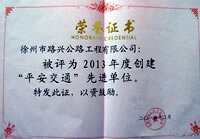 荣誉证书
HONORARY CREDENTIAL
徐州市路兴公路工程有限公司：
被评为2013年度创建
“平安交通”先进单位。
特发此证，以资鼓励。